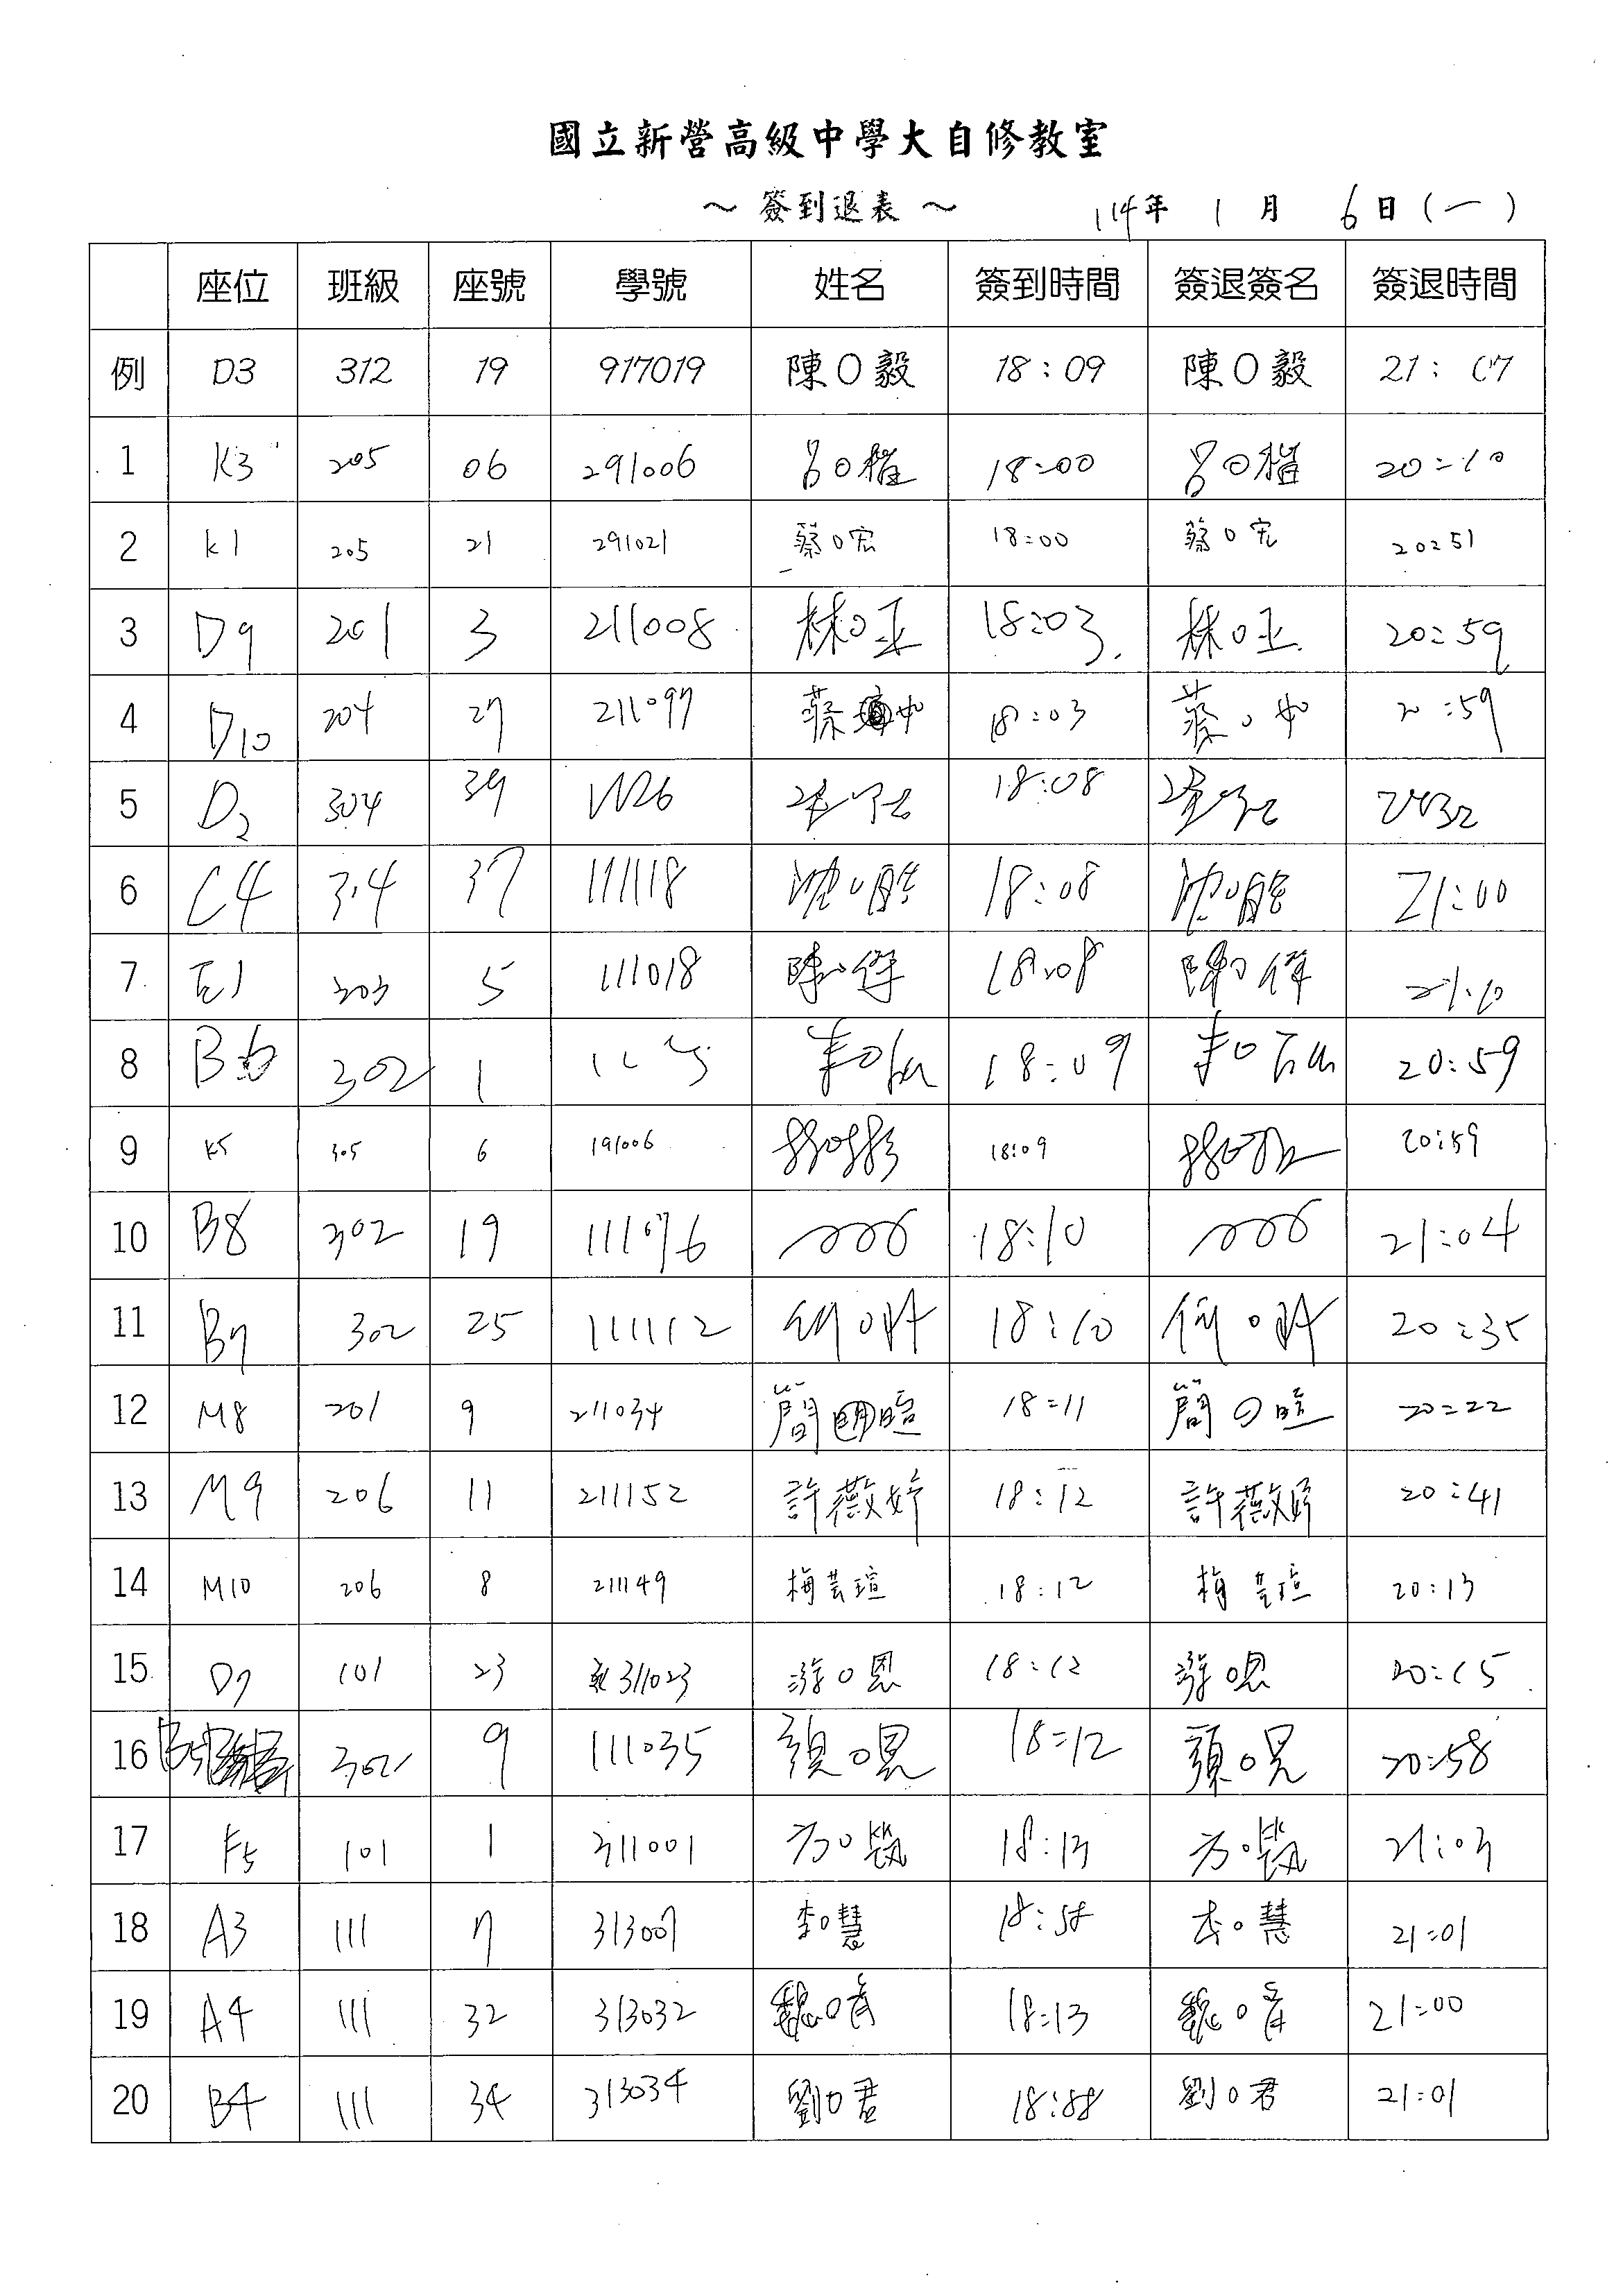 國立新營高級中學大自修教室
～ 簽到退表 ～ 114年 1 月 6日(一)
座位 班級 座號 學號 姓名 簽到時間 簽退簽名 簽退時間
例 D3 312 19 917019 陳O毅 18:09 陳O毅 21:07
1 K3 205 06 291006 呂O 18:00 呂O 20:10
2 k1 205 21 291021 蔡O宏 18:00 蔡O宏 20:51
3 D9 201 3 211008 林O 18:03 林O 20:59
4 D10 204 27 211097 蔡 18:03 蔡O 20:59
5 D2 304 39 18:08
6 C4 304 37 111118 沈O 18:08 沈O 21:00
7 E1 303 5 111018 陳O傑 18:08 陳O傑 21:10
8 B6 302 1 18:09 20:59
9 K5 305 6 191006 18:09 20:59
10 B8 302 19 111076 18:10 21:04
11 B7 302 25 111112 18:10 何O 20:35
12 M8 201 9 211034 簡 18:11 簡O 20:22
13 M9 206 11 211152 許薇妤 18:12 許薇妤 20:41
14 M10 206 8 211149 梅芸瑄 18:12 梅芸瑄 20:13
15 D7 101 23 311023 游O恩 18:12 游O恩 20:15
16 B5 302 9 111035 18:12 20:58
17 F5 101 1 311001 方O 18:13 方O 21:03
18 A3 111 7 313007 李O慧 李O慧 21:01
19 A4 111 32 313032 魏O 18:13 魏O 21:00
20 B4 111 34 313034 劉O君 18:88 劉O君 21:01